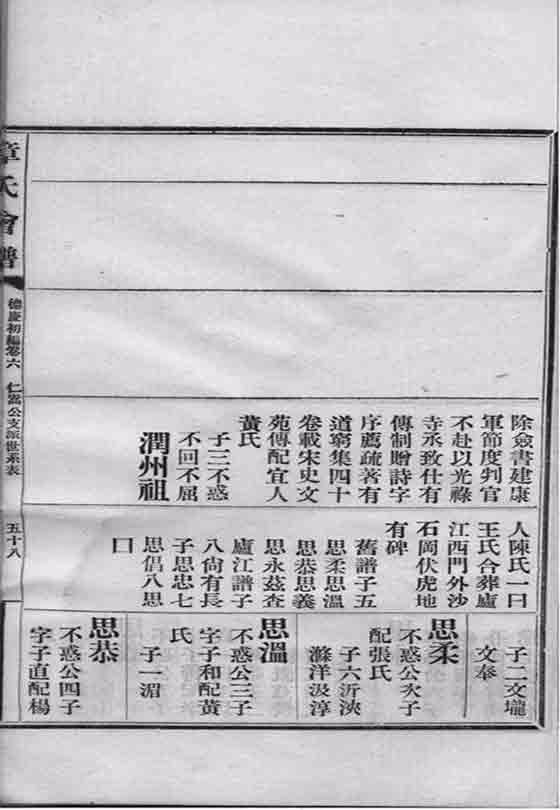 除僉書建康
軍節度判官
不赴以光祿
寺丞致仕有
傳制贈詩字
序薦疏著有
道窮集四十
卷載宋史文
苑傳配宜人
黃氏
子三不惑
不回不屈
潤州祖
人陳氏一曰
王氏合葬廬
江西門外沙
石岡伏虎地
有碑
舊譜子五
思柔思溫
思恭思義
思永茲查
廬江譜子
八尙有長
子思忠七
思倡八思
曰
子二文壠
文奉
思柔
不惑公次子
配張氏
子六沂浹
滌洋汲淳
思溫
不惑公三子
字子和配黃
氏
子一湄
思恭
不惑公四子
字子直配楊
章氏會譜
德慶初編卷六 仁嵩公支派世系表 五十八